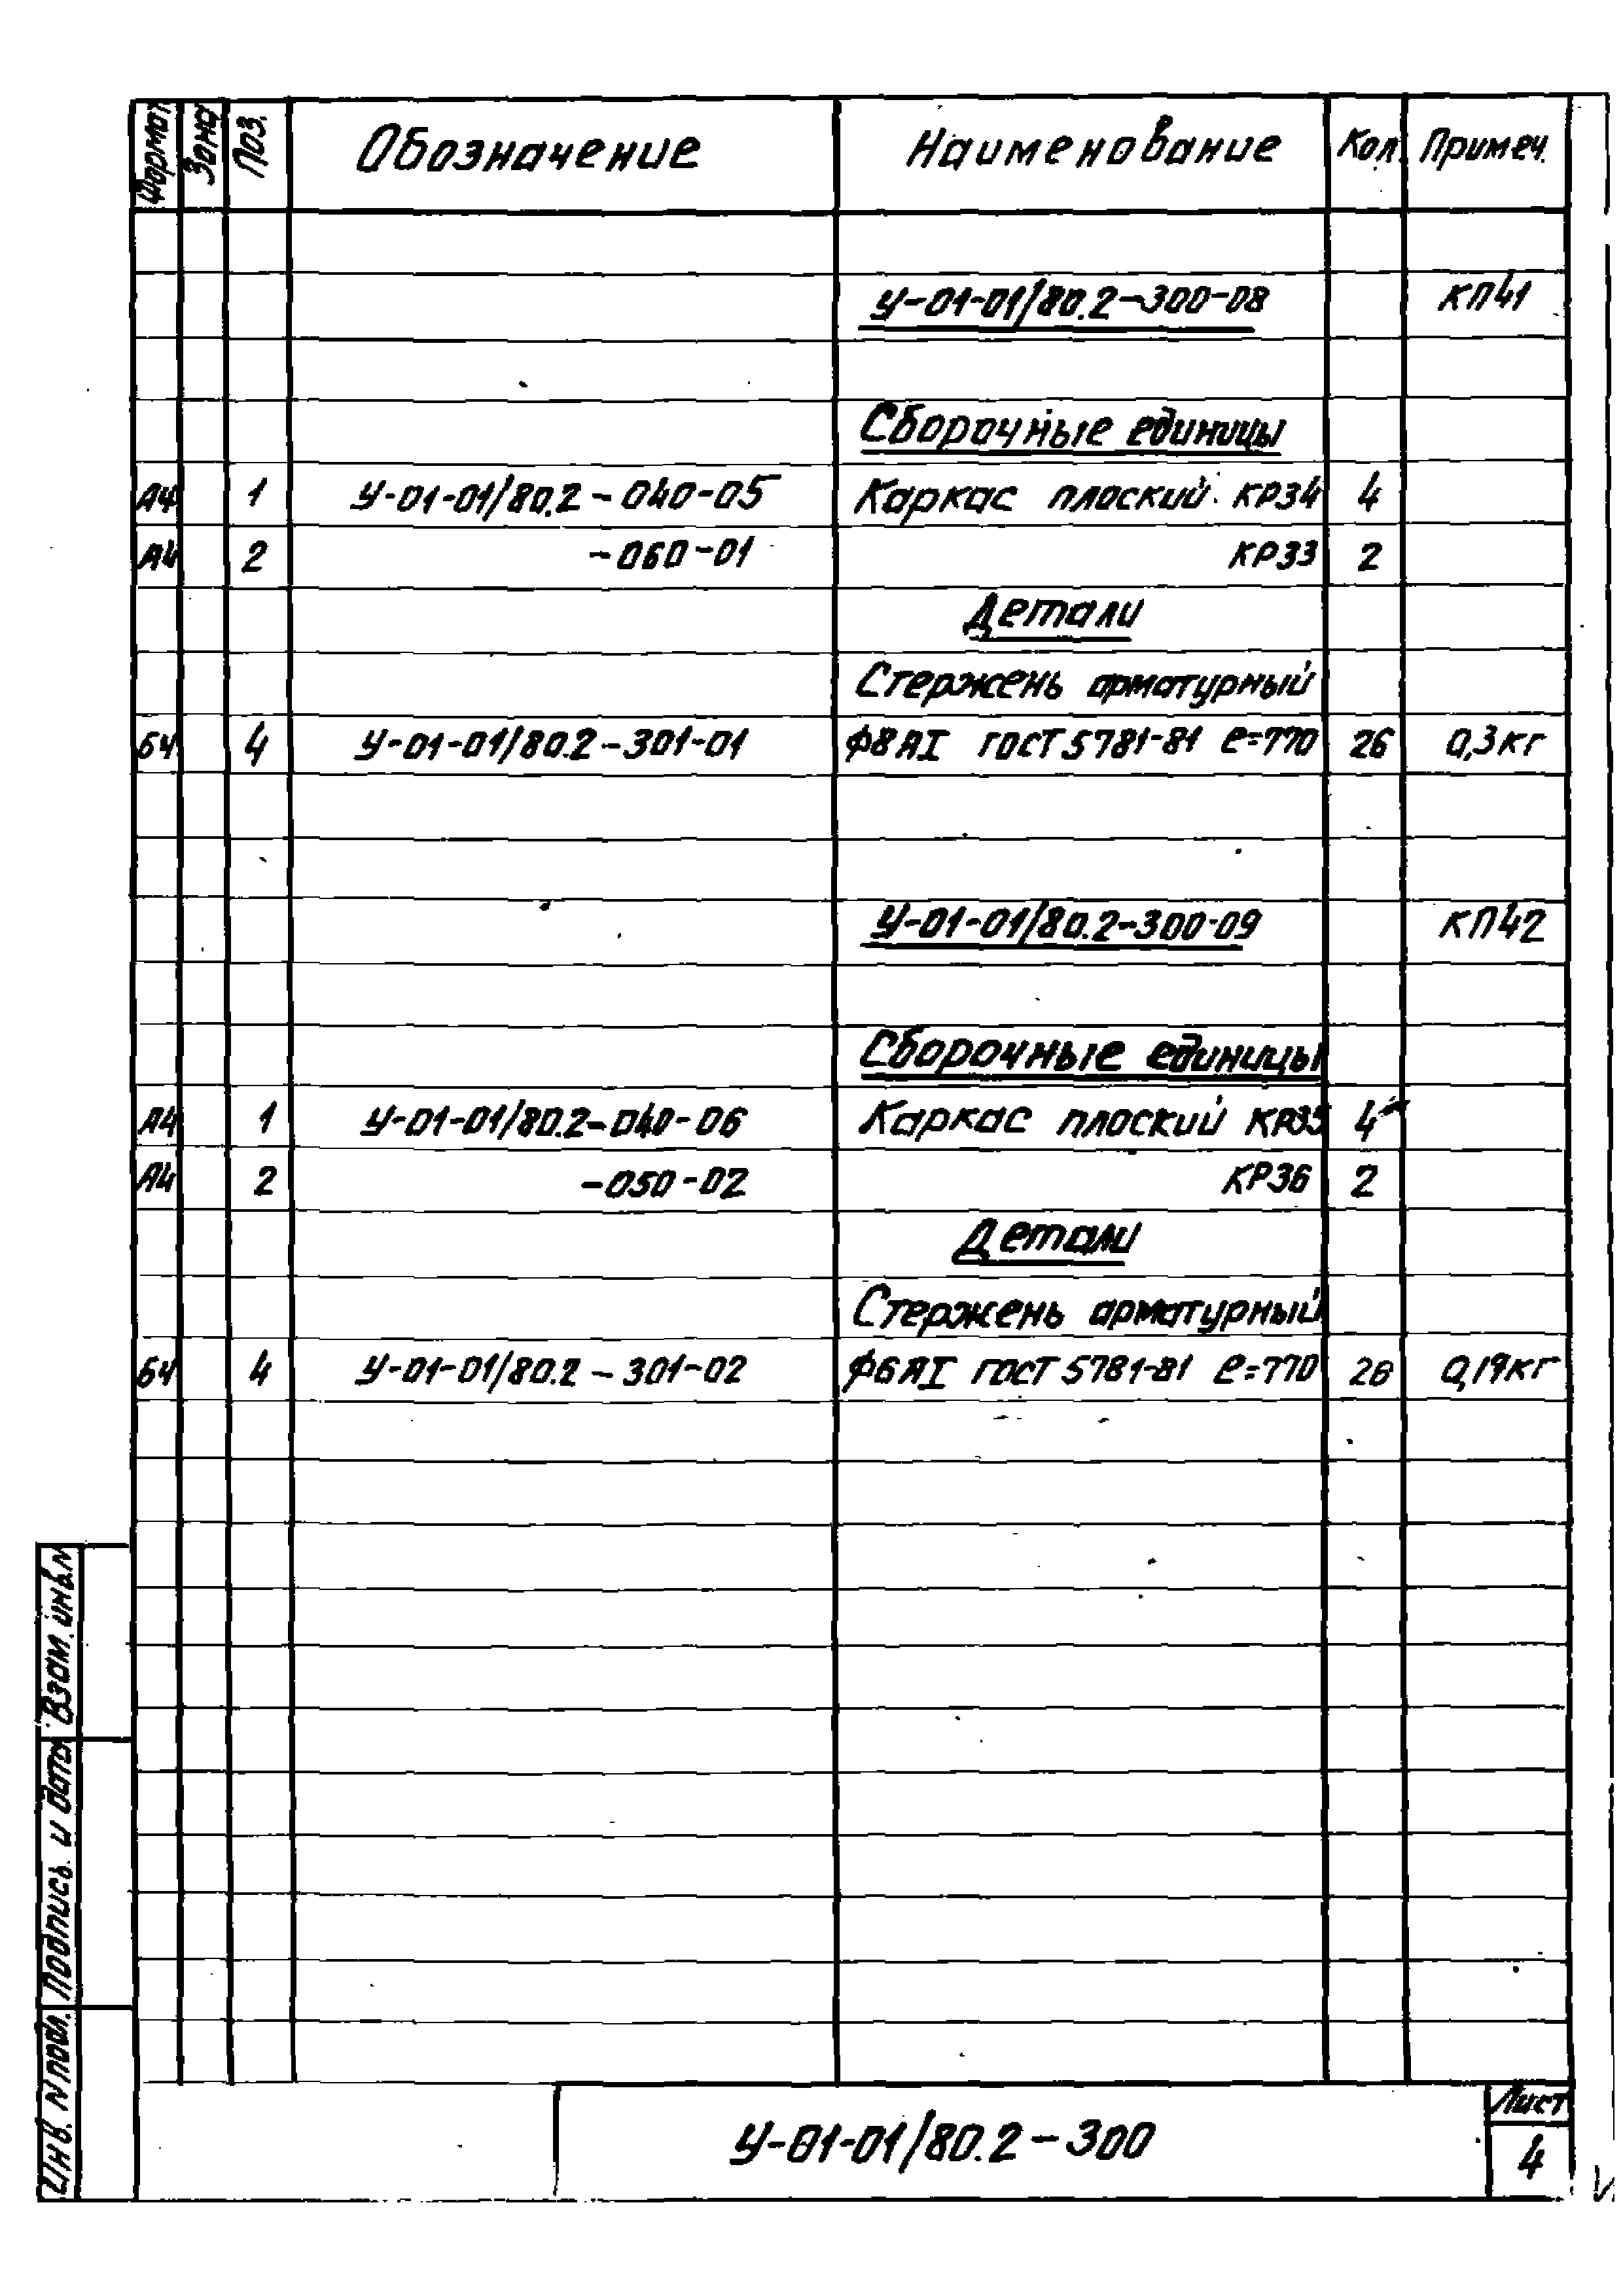 Формат Зона Поз. Обозначение Наименование Кол. Примеч.
У-01-01/80.2-300-08 КП41
Сборочные единицы
А4 1 У-01-01/80.2-040-05 Каркас плоский КР34 4
А4 2 -060-01 КР33 2
Детали
Стержень арматурный
БЧ 4 У-01-01/80.2-301-01 Ф8АI ГОСТ 5781-81 ℓ=770 26 0,3кг
У-01-01/80.2-300-09 КП42
Сборочные единицы
А4 1 У-01-01/80.2-040-06 Каркас плоский КР35 4
А4 2 -050-02 КР36 2
Детали
Стержень арматурный
БЧ 4 У-01-01/80.2-301-02 Ф6АI ГОСТ 5781-81 ℓ=770 0,19кг
Взам. инв. N
Подпись и дата
Инв. N подл.
У-01-01/80.2-300
Лист
4